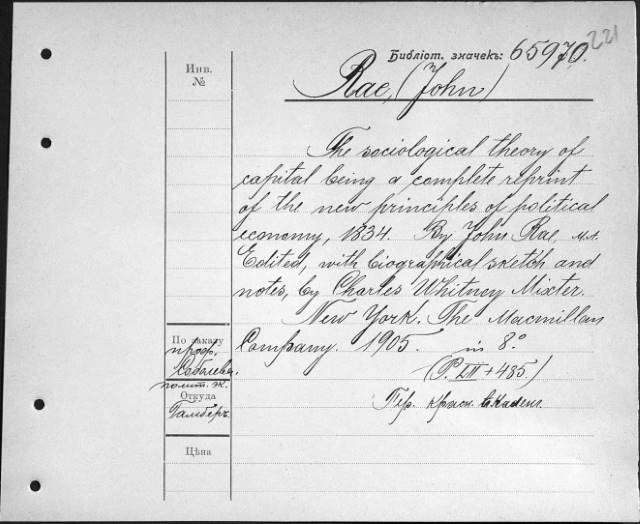 221
Библіот. значекъ: 65970.
Инв.
№
Rae, (John)
The sociological theory of
capital being a complete reprint
of the new principles of political
economy, 1834. By John Rae, M.A.
Edited, with biographical sketch and
notes, by Charles Whitney Mixter.
New York. The Macmillan
Company. 1905. in 8°.
(P. LII + 485.)
По заказу
проф.
Соболева.
полит. эк.
Откуда
Гамберъ
Пер.
Цѣна